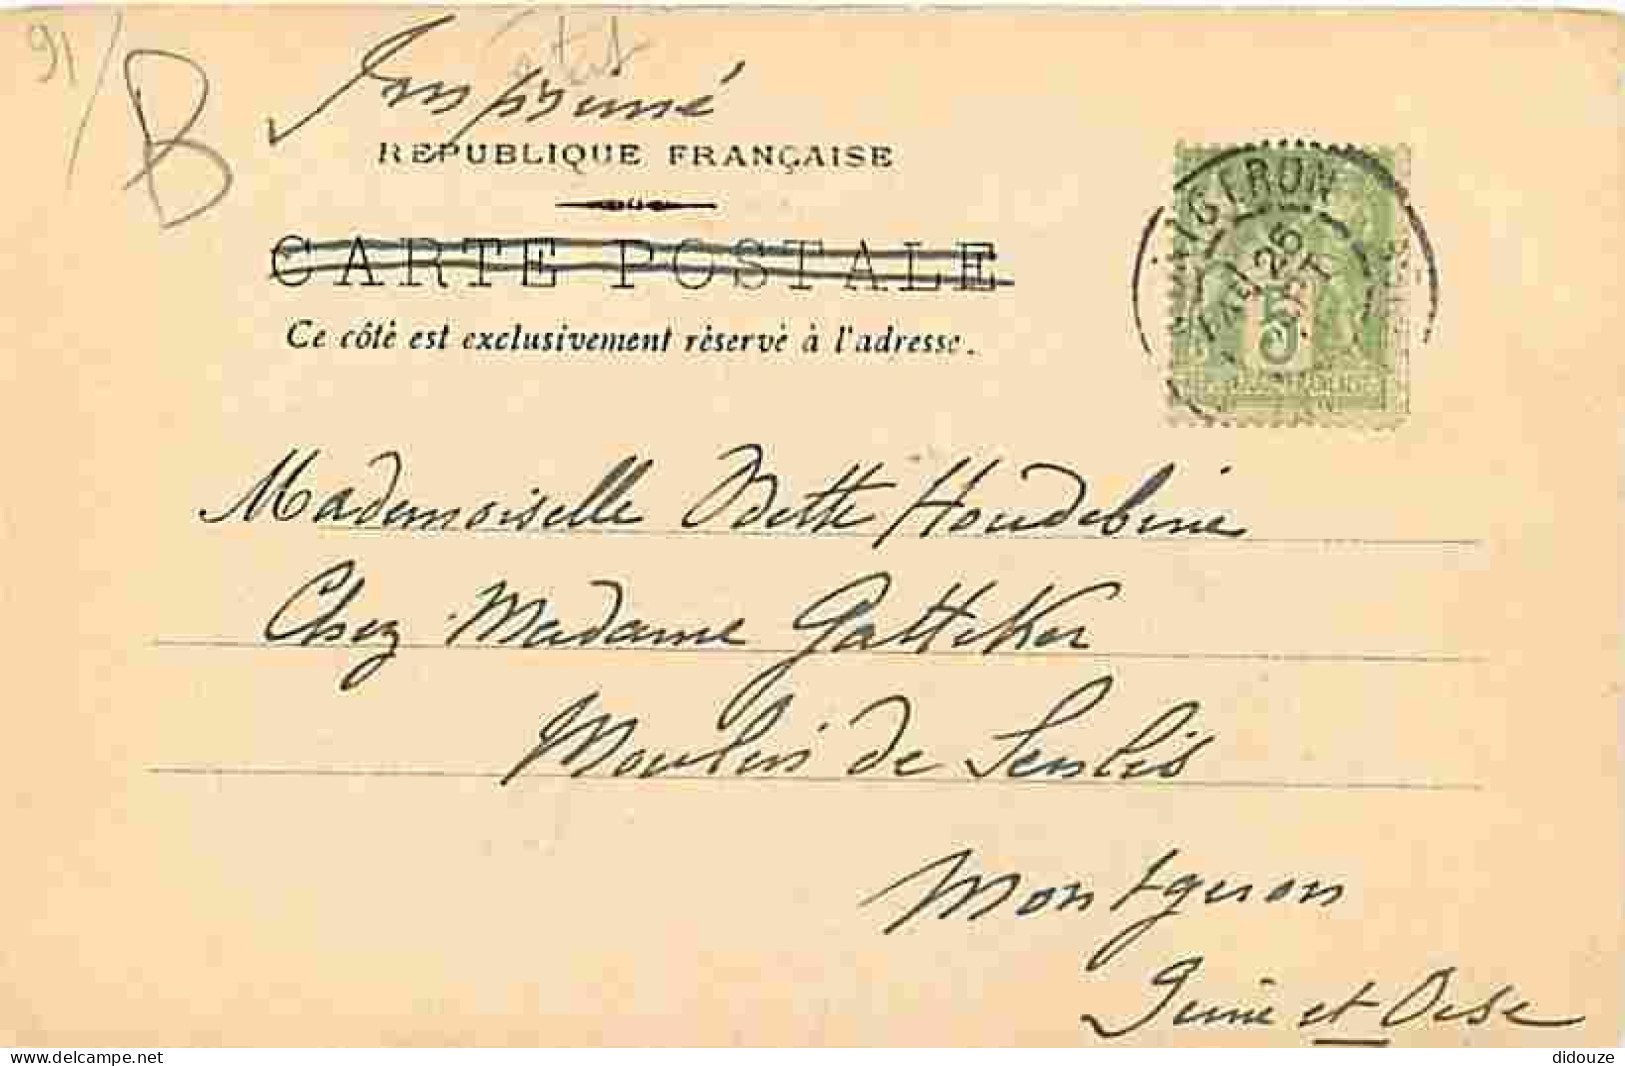 91/B
Imprimé
REPUBLIQUE FRANÇAISE
CARTE POSTALE
Ce côté est exclusivement réservé à l'adresse.
26
5
Mademoiselle Odette Houdebine
Chez Madame Gattiker
Moulin de Senlis
Montgeron
Seine et Oise
didouze